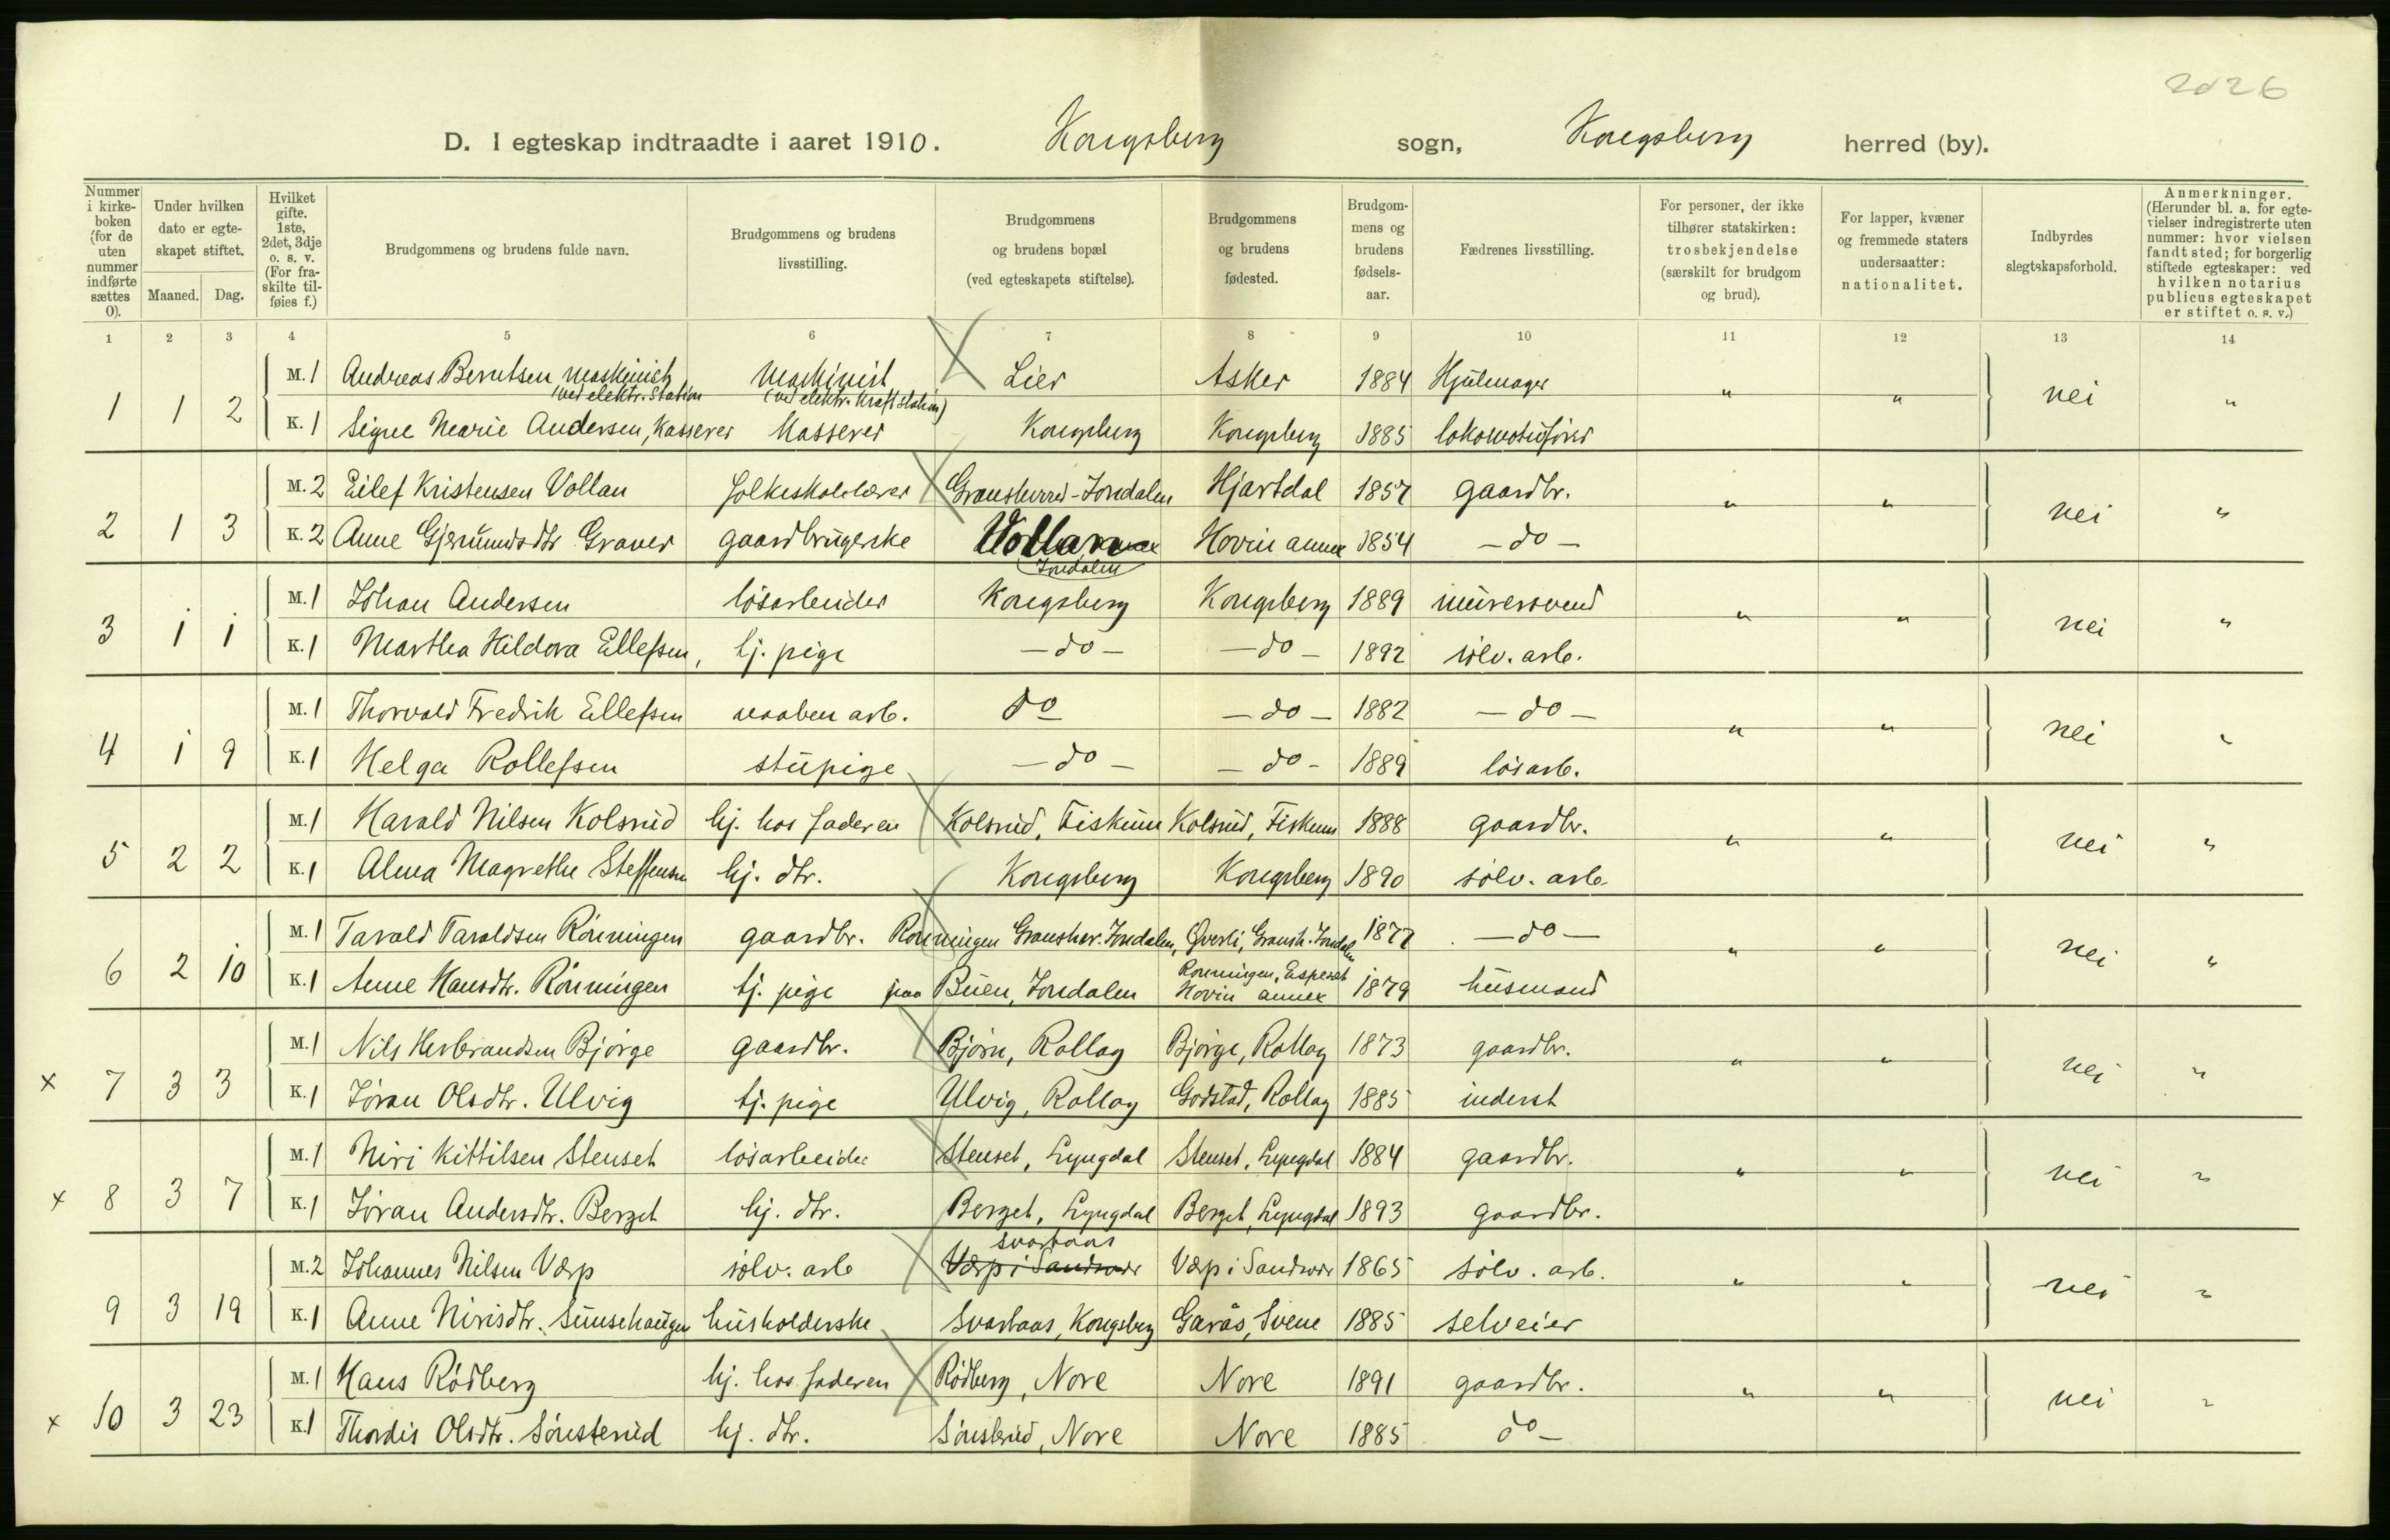 2026
D. I egteskap indtraadte i aaret 1910. Kongsberg sogn, Kongsberg herred (by).
Nummer i kirkeboken (for de uten nummer indførte sættes 0). Under hvilken dato er egteskapet stiftet. Maaned. Dag. Hvilket gifte. 1ste, 2det, 3dje o. s. v. (For fraskilte tilføies f.) Brudgommens og brudens fulde navn. Brudgommens og brudens livsstilling. Brudgommens og brudens bopæl (ved egteskapets stiftelse). Brudgommens og brudens fødested. Brudgommens og brudens fødselsaar. Fædrenes livsstilling. For personer, der ikke tilhører statskirken: trosbekjendelse (særskilt for brudgom og brud). For lapper, kvæner og fremmede staters undersaatter: nationalitet. Indbyrdes slegtskapsforhold. Anmerkninger. (Herunder bl. a. for egtevielser indregistrerte uten nummer: hvor vielsen fandt sted; for borgerlig stiftede egteskaper: ved hvilken notarius publicus egteskapet er stiftet o. s. v.)
1 2 3 4 5 6 7 8 9 10 11 12 13 14
M. 1 Andreas Berntsen, maskinist Maskinist Lier Asker 1884 Hjulmager
(ved elektr. Station (ved elektr. Kraftstation)
1 1 2 " " nei "
K. 1 Signe Marie Andersen, Kasserer Kasserer Kongsberg Kongsberg 1885 lokomotivfører
M. 2 Eilef Kristensen Vollan folkeskolelærer Gransherred-Jondalen Hjartdal 1857 gaardbr.
2 1 3 " " nei "
K. 2 Anne Gjermundsdtr Graver gaardbrugerske Vollan Hovin annex 1854 — do —
Jondalen
M. 1 Johan Andersen løsarbeider Kongsberg Kongsberg 1889 murersvend
3 1 1 " " nei "
K. 1 Martha Hildora Ellefsen, tj. pige — do — — do — 1892 sølv. arb.
M. 1 Thorvald Fredrik Ellefsen vaaben arb. do — do — 1882 — do —
4 1 9 " " nei "
K. 1 Helga Rollefsen stupige — do — — do — 1889 løsarb.
M. 1 Harald Nilsen Kolsrud hj. hos faderen Kolsrud, Fiskum Kolsrud, Fiskum 1888 gaardbr.
5 2 2 " " nei "
K. 1 Alma Magrethe Steffensen hj. dtr. Kongsberg Kongsberg 1890 sølv. arb.
M. 1 Tarald Taraldsen Rønningen gaardbr. Rønningen Gransher. Jondalen, Øverli, Gransh. Jondalen 1877 — do —
6 2 10 " " nei "
Rønningen, Espeset
K. 1 Anne Hansdtr. Rønningen tj. pige paa Buen, Jondalen Hovin annex 1879 husmand
M. 1 Nils Herbrandsen Bjørge gaardbr. Bjørn, Rollag Bjørge, Rollag 1873 gaardbr.
x 7 3 3 " " nei "
K. 1 Jøran Olsdtr. Ulvig tj. pige Ulvig, Rollag Godstad, Rollag 1885 inderst
M. 1 Niri Kittilsen Stenset løsarbeider Stenset, Lyngdal Stenset, Lyngdal 1884 gaardbr.
x 8 3 7 " " nei "
K. 1 Jøran Andersdtr. Berget hj. dtr. Berget, Lyngdal Berget, Lyngdal 1893 gaardbr.
Svartaas
M. 2 Johannes Nilsen Værp sølv. arb Værp i Sandsvær Værp i Sandsvær 1865 sølv. arb.
9 3 19 " " nei "
K. 1 Anne Nirisdtr. Sunsehaugen husholderske Svartaas, Kongsberg Garås, Svene 1885 selveier
M. 1 Hans Rødberg hj. hos faderen Rødberg, Nore Nore 1891 gaardbr.
x 10 3 23 " " nei "
K. 1 Thordis Olsdtr. Sønsterud hj. dtr. Sønsterud, Nore Nore 1885 do —